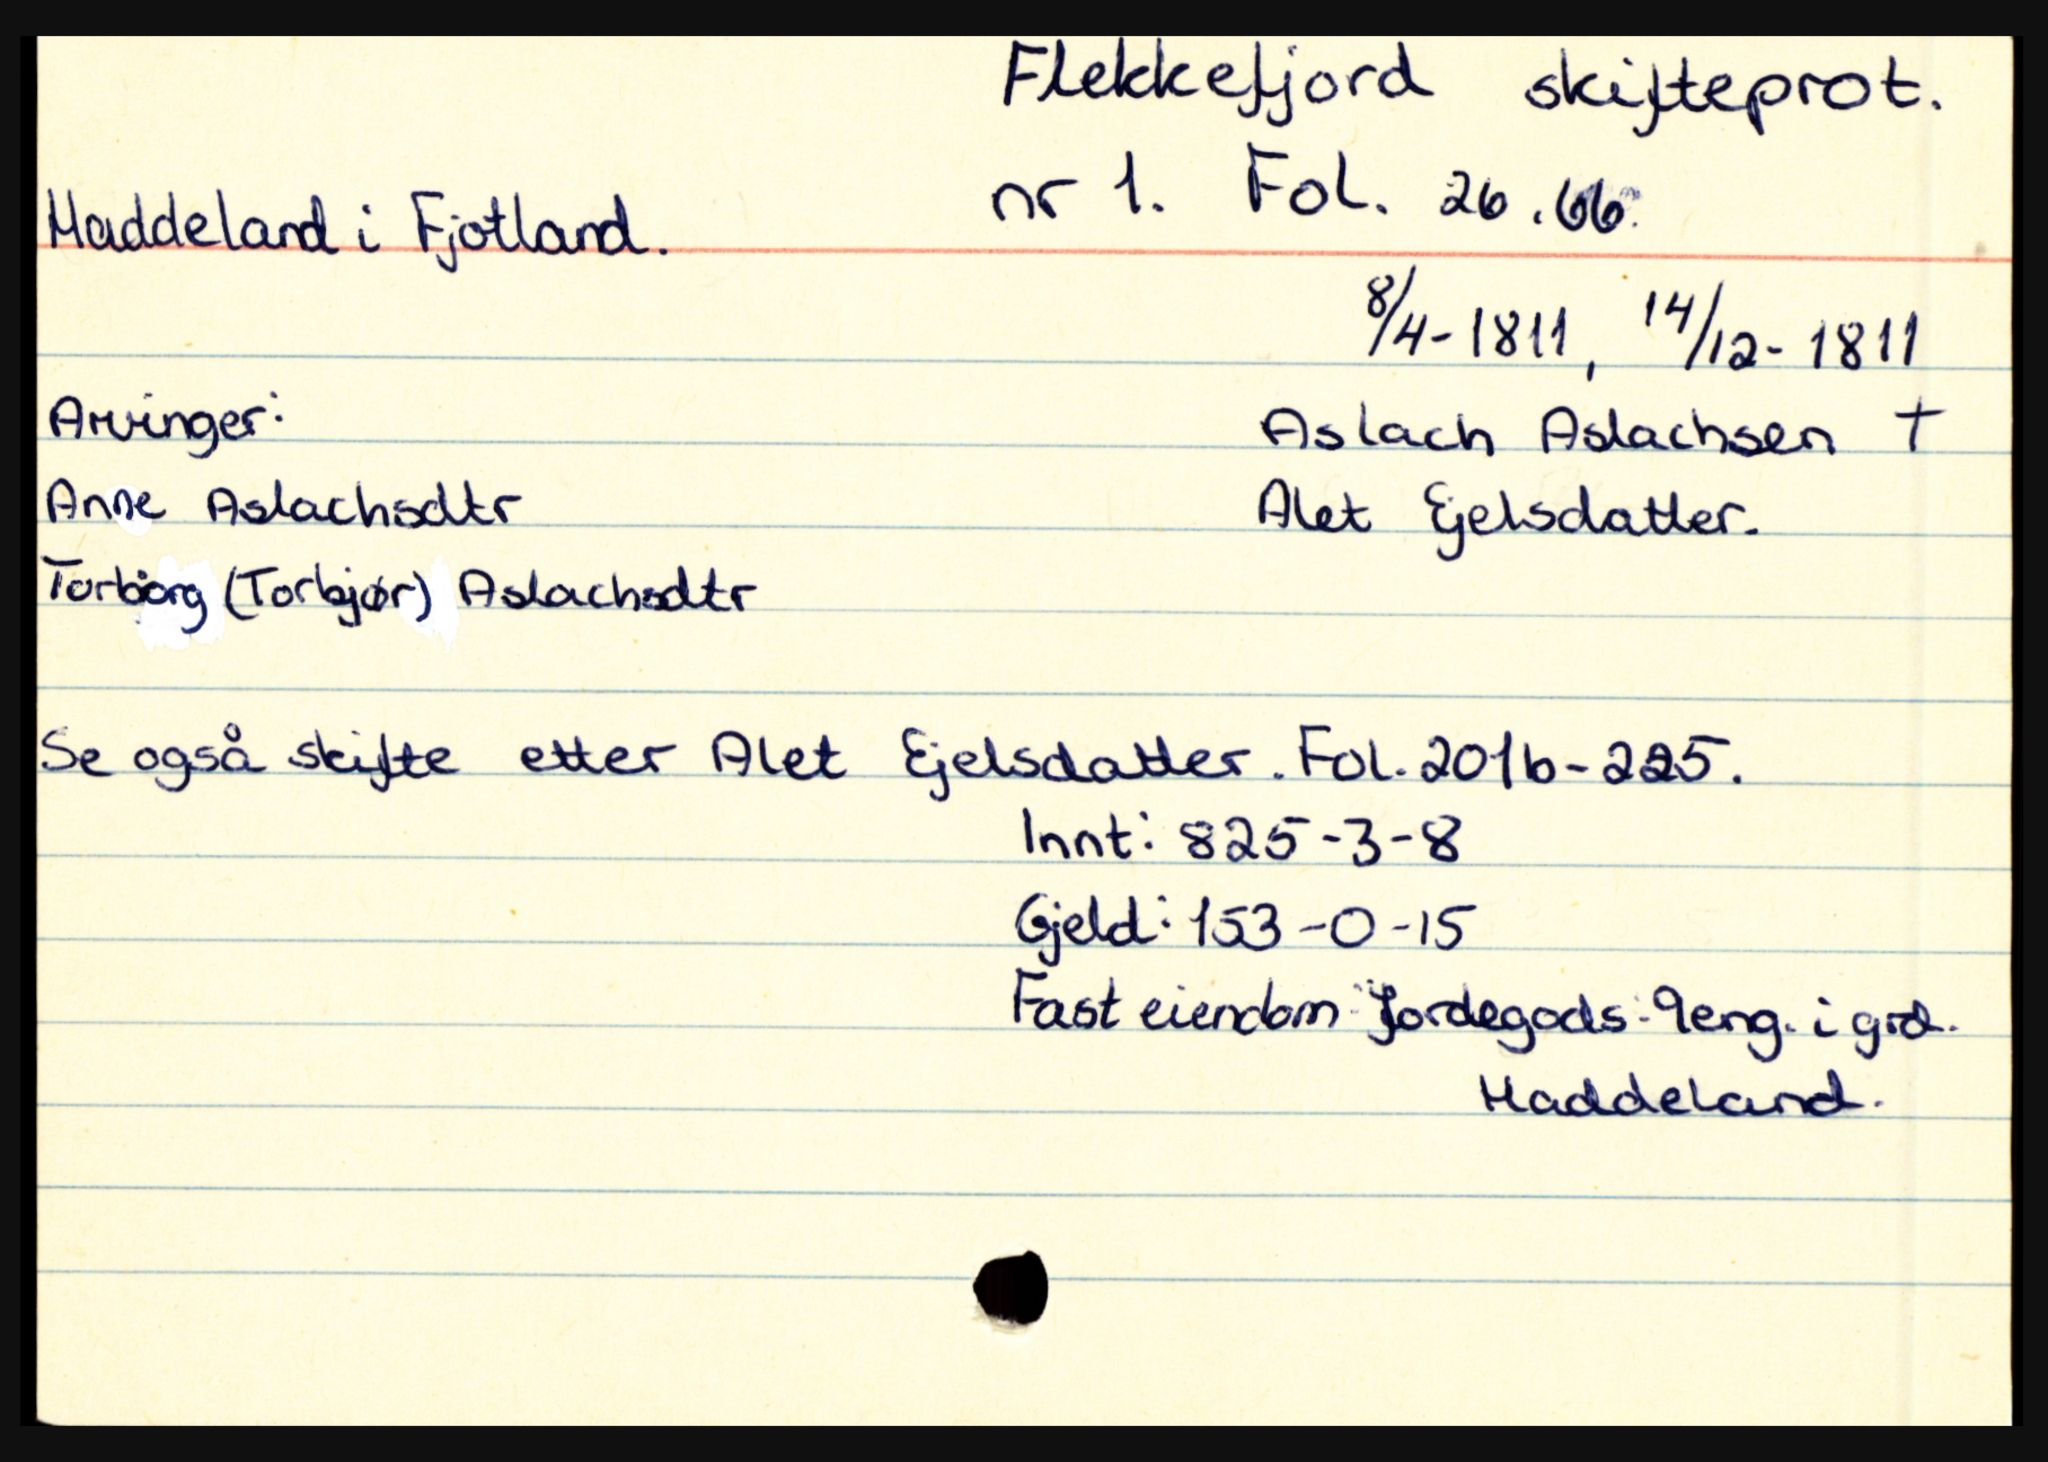 Flekkefjord skifteprot.
nr 1. Fol. 26.66.
Haddeland i Fjotland.
8/4-1811, 14/12-1811
Arvinger:
Aslach Aslachsen †
Anne Aslachsdtr
Alet Ejelsdatter.
Torborg (Torbjør) Aslachsdtr
Se også skifte etter Alet Ejelsdatter. Fol. 201b-225.
Innt: 825-3-8
Gjeld: 153-0-15
Fast eiendom: Jordegods: 9eng. i grd.
Haddeland.